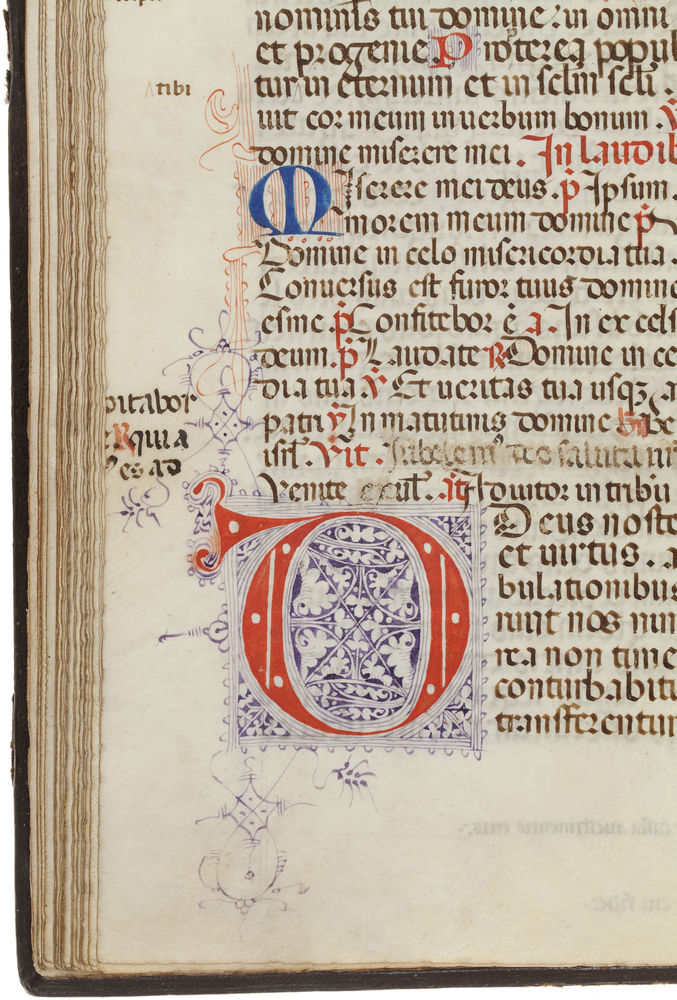 nominis tui domine : in omni
et progenie P ropterea popul
tur in eternum et in sclm scli .
tibi
uit cor meum in uerbum bonum V
domine miserere mei . In laudib
Miserere mei deus . p Ipsum
morem meum domine p
Domine in celo misericordia tua .
Conuersus est furor tuus domine
esme . p Confitebor e a . In excels
deum . p Laudate R Domine in ce
dia tua V Et ueritas tua usq3 a
pitabor
patri V In matutinis domine
R quia
isrl . Vit . Jubelem deo saluta
es ad
Venite exul . it Aduitor in tribu
Deus noste
et uirtus . a
bulationibus
nuit nos nim
rea non time
conturbabitu
transferentur